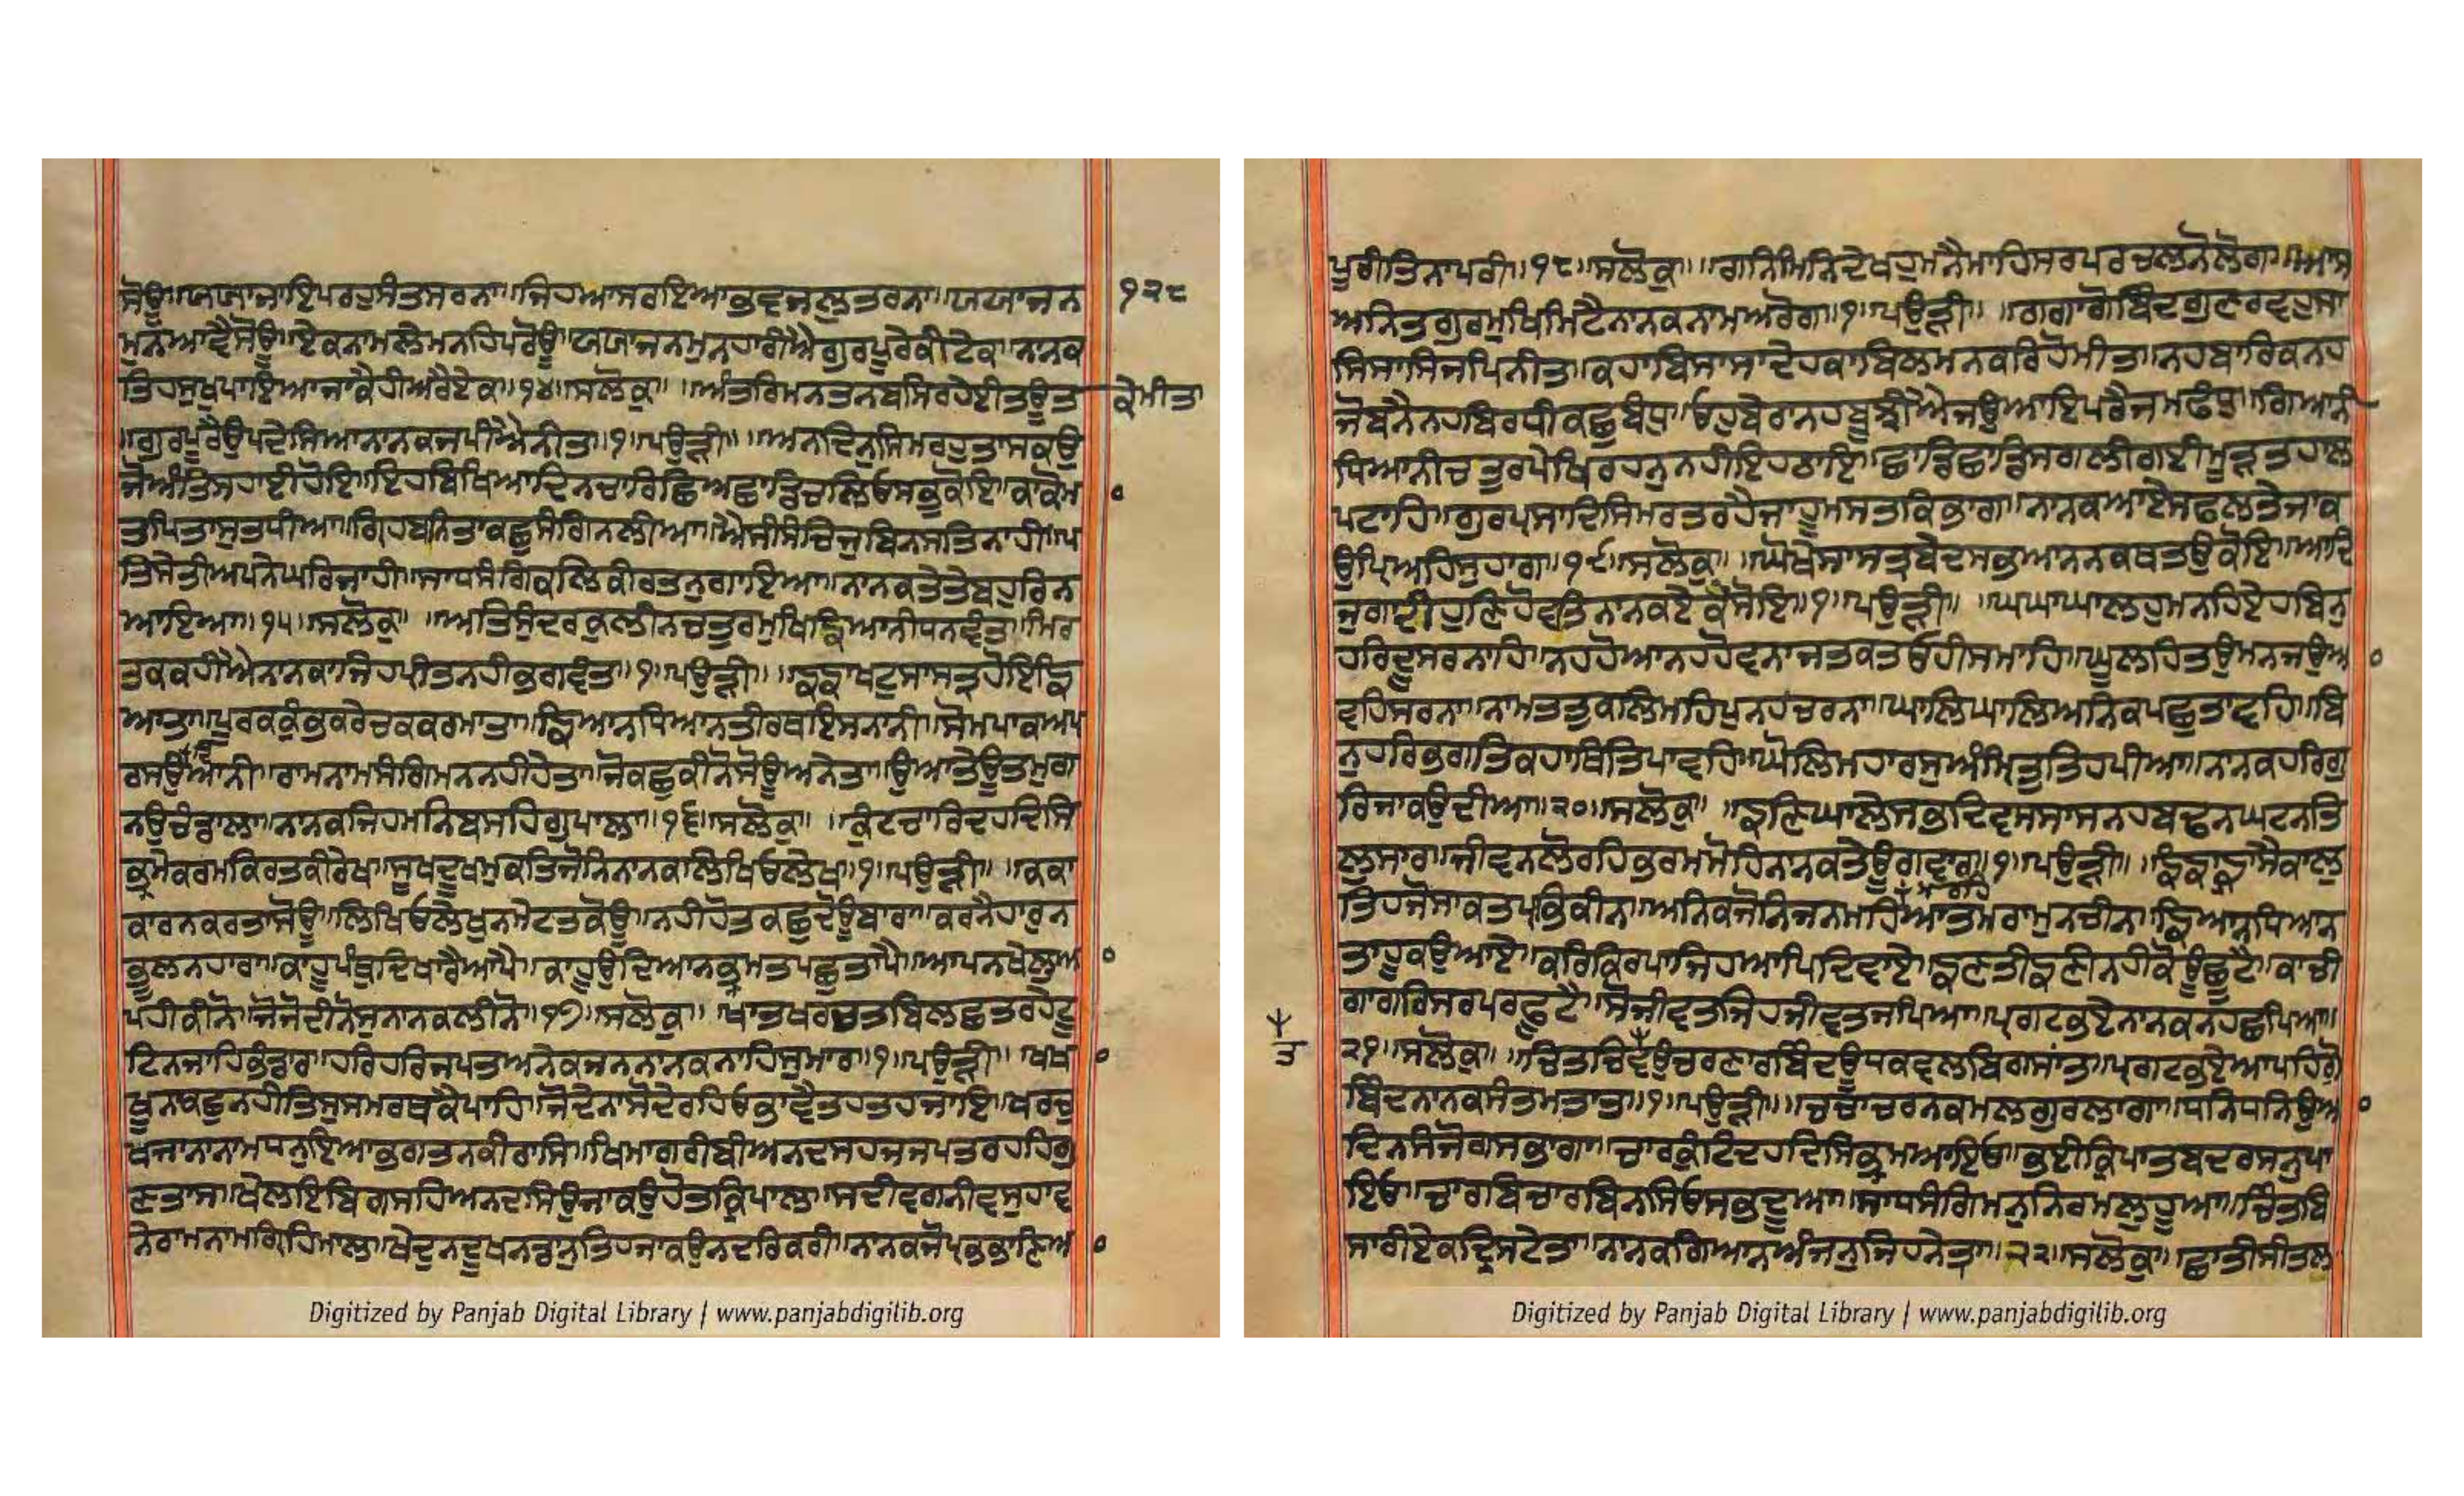 ਸੋਊ॥ਯਯਾਜਾਇਪਰਹੁਸੰਤਸਰਨਾ॥ਜਿਹਆਸਰਇਆਭਵਜਲੁਤਰਨਾ॥ਯਯਾਜਨ ੧੨੮
ਮੁਨਆਵੈਸੋਊ॥ਏਕਨਾਮਲੇਮਨਹਿਪਰੋਊ॥ਯਯਾਜਨਮੁਨਹਾਰੀਐਗੁਰਪੂਰੇਕੀਟੇਕ॥ਨਾਨਕ
ਤਿਹਸੁਖੁਪਾਇਆਜਾਕੈਹੀਅਰੈਏਕ॥੧੪॥ਸਲੋਕੁ॥ ॥ਅੰਤਰਿਮਨਤਨਬਸਿਰਹੇਈਤਊਤ ਕੇਮੀਤਾ
॥ਗੁਰਪੂਰੈਉਪਦੇਸਿਆਨਾਨਕਜਪੀਐਨੀਤਾ॥੧॥ਪਉੜੀ॥ ॥ਅਨਦਿਨੁਸਿਮਰਹੁਤਾਸਕਉ
ਜੋਅੰਤਿਸਹਾਈਹੋਇ॥ਇਹਬਿਖਿਆਦਿਨਚਾਰਿਛਿਅਛਾਡਿਚਲਿਓਸਭੁਕੋਇ॥ਕਾਕੋਮਾ
ਤਪਿਤਾਸੁਤਧੀਆ॥ਗ੍ਰਿਹਬਨਿਤਾਕਛੁਸੰਗਿਨਲੀਆ॥ਐਸੀਸੰਚਿਜੁਬਿਨਸਤਿਨਾਹੀ॥ਪ
ਤਿਸੇਤੀਅਪੁਨੇਘਰਿਜਾਹੀ॥ਸਾਧਸੰਗਿਕਲਿਕੀਰਤਨੁਗਾਇਆ॥ਨਾਨਕਤੇਤੇਬਹੁਰਿਨ
ਆਇਆ॥੧੫॥ਸਲੋਕੁ॥ ॥ਅਤਿਸੁੰਦਰਕੁਲੀਨਚਤੁਰਮੁਖਿਙਿਆਨੀਧਨਵੰਤ॥ਮਿਰ
ਤਕਕਹੀਐਨਾਨਕਾਜਿਹਪ੍ਰੀਤਨਹੀਭਗਵੰਤ॥੧॥ਪਉੜੀ॥ ॥ਙਙਾਖਟੁਸਾਸਤ੍ਰਹੋਇਙਿ
ਆਤਾ॥ਪੂਰਕਕੁੰਭਕਰੇਚਕਕਰਮਾਤਾ॥ਙਿਆਨਧਿਆਨਤੀਰਥਇਸਨਾਨੀ॥ਸੋਮਪਾਕਅਪ
ਰਸਉਦਿਆਨੀ॥ਰਾਮਨਾਮਸੰਗਿਮਨਨਹੀਹੇਤਾ॥ਜੋਕਛੁਕੀਨੋਸੋਊਅਨੇਤਾ॥ਉਆਤੇਊਤਮੁਗ
ਨਉਚੰਡਾਲਾ॥ਨਾਨਕਜਿਹਮਨਿਬਸਹਿਗੁਪਾਲਾ॥੧੬॥ਸਲੋਕੁ॥ ॥ਕੁੰਟਚਾਰਿਦਹਦਿਸਿ
ਭ੍ਰਮੇਕਰਮਕਿਰਤਕੀਰੇਖ॥ਸੂਖਦੂਖਮੁਕਤਿਜੋਨਿਨਾਨਕਾਲਿਖਿਓਲੇਖ॥੧॥ਪਉੜੀ॥ ॥ਕਕਾ
ਕਾਰਨਕਰਤਾਸੋਊ॥ਲਿਖਿਓਲੇਖੁਨਮੇਟਤਕੋਊ॥ਨਹੀਹੋਤਕਛੁਦੋਊਬਾਰਾ॥ਕਰਨੈਹਾਰੁਨ
ਭੂਲਨਹਾਰਾ॥ਕਾਹੂਪੰਥੁਦਿਖਾਰੈਆਪੈ॥ਕਾਹੂਉਦਿਆਨਭ੍ਰਮਤਪਛੁਤਾਪੈ॥ਆਪਨਖੇਲੁਆ
ਪਹੀਕੀਨੋ॥ਜੋਜੋਦੀਨੋਸੁਨਾਨਕਲੀਨੋ॥੧੭॥ਸਲੋਕੁ॥ ਖਾਤਖਰਚਤਬਿਲਛਤਰਹੇਟੂ
ਟਿਨਜਾਹਿਭੰਡਾਰ॥ਹਰਿਹਰਿਜਪਤਅਨੇਕਜਨਨਾਨਕਨਾਹਿਸੁਮਾਰ॥੧॥ਪਉੜੀ॥ ਖਖਾ
ਖੂਨਕਛੁਨਹੀਤਿਸੁਸਮਰਥਕੈਪਾਹਿ॥ਜੋਦੇਨਾਸੋਦੇਰਹਿਓਭਾਵੈਤਹਤਹਜਾਇ॥ਖਰਚੁ
ਖਜਾਨਾਨਾਮਧਨੁਇਆਭਗਤਨਕੀਰਾਸਿ॥ਖਿਮਾਗਰੀਬੀਅਨਦਸਹਜਜਪਤਰਹਹਿਗੁ
ਣਤਾਸ॥ਖੇਲਇਬਿਗਸਹਿਅਨਦਸਿਉਜਾਕਉਹੋਤਕ੍ਰਿਪਾਲ॥ਸਦੀਵਗਨੀਵਸੁਹਾਵ
ਨੇਰਾਮਨਾਮਗ੍ਰਿਹਿਮਾਲ॥ਖੇਦੁਨਦੂਖਨਡਾਨੁਤਿਹਜਾਕਉਨਦਰਿਕਰੀ॥ਨਾਨਕਜੋਪ੍ਰਭਭਾਣਿਆ
ਪੂਰੀਤਿਨਾਪਰੀ॥੧੮॥ਸਲੋਕੁ॥ ॥ਗਨਿਮਿਨਿਦੇਖਹੁਮਨੈਮਾਹਿਸਰਪਰਚਲਨੋਲੋਗ॥ਆਸ
ਅਨਿਤਗੁਰਮੁਖਿਮਿਟੈਨਾਨਕਨਾਮਅਰੋਗ॥੧॥ਪਉੜੀ॥ ॥ਗਗਾਗੋਬਿੰਦਗੁਣਰਵਹੁਸਾ
ਸਿਸਾਸਿਜਪਿਨੀਤ॥ਕਹਾਬਿਸਾਸਾਦੇਹਕਾਬਿਲਮਨਕਰਿਹੋਮੀਤ॥ਨਹਬਾਰਿਕਨਹ
ਜੋਬਨੈਨਹਬਿਰਧੀਕਛੁਬੰਧੁ॥ਓਹਬੇਰਾਨਹਬੂਝੀਐਜਉਆਇਪਰੈਜਮਫੰਧੁ॥ਗਿਆਨੀ
ਧਿਆਨੀਚਤੁਰਪੇਖਿਰਹਨੁਨਹੀਇਹਠਾਇ॥ਛਾਡਿਛਾਡਿਸਗਲੀਗਈਮੂੜਤਹਾਲ
ਪਟਾਹਿ॥ਗੁਰਪ੍ਰਸਾਦਿਸਿਮਰਤਰਹੈਜਾਹੂਮਸਤਕਿਭਾਗ॥ਨਾਨਕਆਏਸਫਲਤੇਜਾਕ
ਉਪ੍ਰਿਅਹਿਸੁਹਾਗ॥੧੯॥ਸਲੋਕੁ॥ ॥ਘੋਖੇਸਾਸਤ੍ਰਬੇਦਸਭਆਨਨਕਥਤਉਕੋਇ॥ਆਦਿ
ਜੁਗਾਦੀਹੁਣਿਹੋਵਤਿਨਾਨਕਏਕੈਸੋਇ॥੧॥ਪਉੜੀ॥ ॥ਘਘਾਘਾਲਹੁਮਨਹਿਏਹਬਿਨੁ
ਹਰਿਦੂਸਰਨਾਹਿ॥ਨਹਹੋਆਨਹਹੋਵਨਾਜਤਕਤਓਹੀਸਮਾਹਿ॥ਘੂਲਹਿਤਉਮਨਜਉਆ
ਵਹਿਸਰਨਾ॥ਨਾਮਤਤੁਕਲਿਮਹਿਪੁਨਹਚਰਨਾ॥ਘਾਲਿਘਾਲਿਅਨਿਕਪਛੁਤਾਵਹਿ॥ਬਿ
ਨੁਹਰਿਭਗਤਿਕਹਾਥਿਤਿਪਾਵਹਿ॥ਘੋਲਿਮਹਾਰਸੁਅੰਮ੍ਰਿਤੁਤਿਹਪੀਆ॥ਨਾਨਕਹਰਿਗੁ
ਰਿਜਾਕਉਦੀਆ॥੨੦॥ਸਲੋਕੁ॥ ॥ਙਣਿਘਾਲੇਸਭਦਿਵਸਸਾਸਨਹਬਢਨਘਟਨਤਿ
ਲੁਸਾਰ॥ਜੀਵਨਲੋਰਹਿਭਰਮਮੋਹਿਨਾਨਕਤੇਊਗਵਾਰ॥੧॥ਪਉੜੀ॥ ॥ਙੰਙਾਙ੍ਰਾਸੈਕਾਲੁ
ਤਿਹਜੋਸਾਕਤਪ੍ਰਭਿਕੀਨ॥ਅਨਿਕਜੋਨਿਜਨਮਹਿਆਤਮਰਾਮੁਨਚੀਨ॥ਙਿਆਨਧਿਆਨ
ਤਾਹੂਕਉਆਏ॥ਕਰਿਕਿਰਪਾਜਿਹਆਪਿਦਿਵਾਏ॥ਙਣਤੀਙਣੀਨਹੀਕੋਊਛੂਟੈ॥ਕਾਚੀ
ਗਾਗਰਿਸਰਪਰਫੂਟੈ॥ਸੋਜੀਵਤਜਿਹਜੀਵਤਜਪਿਆ॥ਪ੍ਰਗਟਭਏਨਾਨਕਨਹਛਪਿਆ॥
੨੧॥ਸਲੋਕੁ॥ ॥ਚਿਤਚਿਤਵਉਚਰਣਾਰਬਿੰਦਊਧਕਵਲਬਿਗਸਾਂਤ॥ਪ੍ਰਗਟਭਏਆਪਹਿਗੋੁ
ਬਿੰਦਨਾਨਕਸੰਤਮਤਾਂਤ॥੧॥ਪਉੜੀ॥ ॥ਚਚਾਚਰਨਕਮਲਗੁਰਲਾਗਾ॥ਧਨਿਧਨਿਉਆ
ਦਿਨਸੰਜੋਗਸਭਾਗਾ॥ਚਾਰਕੁੰਟਿਦਹਦਿਸਿਭ੍ਰਮਆਇਓ॥ਭਈਕ੍ਰਿਪਾਤਬਦਰਸਨੁਪਾ
ਇਓ॥ਚਾਰਬਿਚਾਰਬਿਨਸਿਓਸਭਦੂਆ॥ਸਾਧਸੰਗਿਮਨੁਨਿਰਮਲੁਹੂਆ॥ਚਿੰਤਬਿ
ਸਾਰੀਏਕਦ੍ਰਿਸਟੇਤਾ॥ਨਾਨਕਗਿਆਨਅੰਜਨੁਜਿਹਨੇਤ੍ਰਾ॥੨੨॥ਸਲੋਕੁ॥ ॥ਛਾਤੀਸੀਤਲ
Digitized by Panjab Digital Library | www.panjabdigilib.org
Digitized by Panjab Digital Library | www.panjabdigilib.org